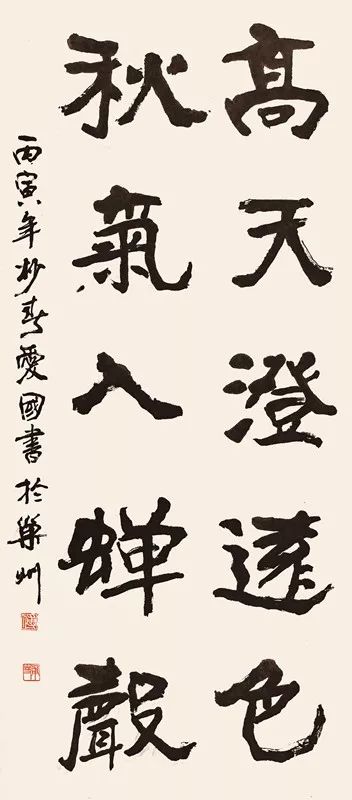 高天澄遠色
秋氣入蟬聲
丙寅年杪春愛國書於樂州